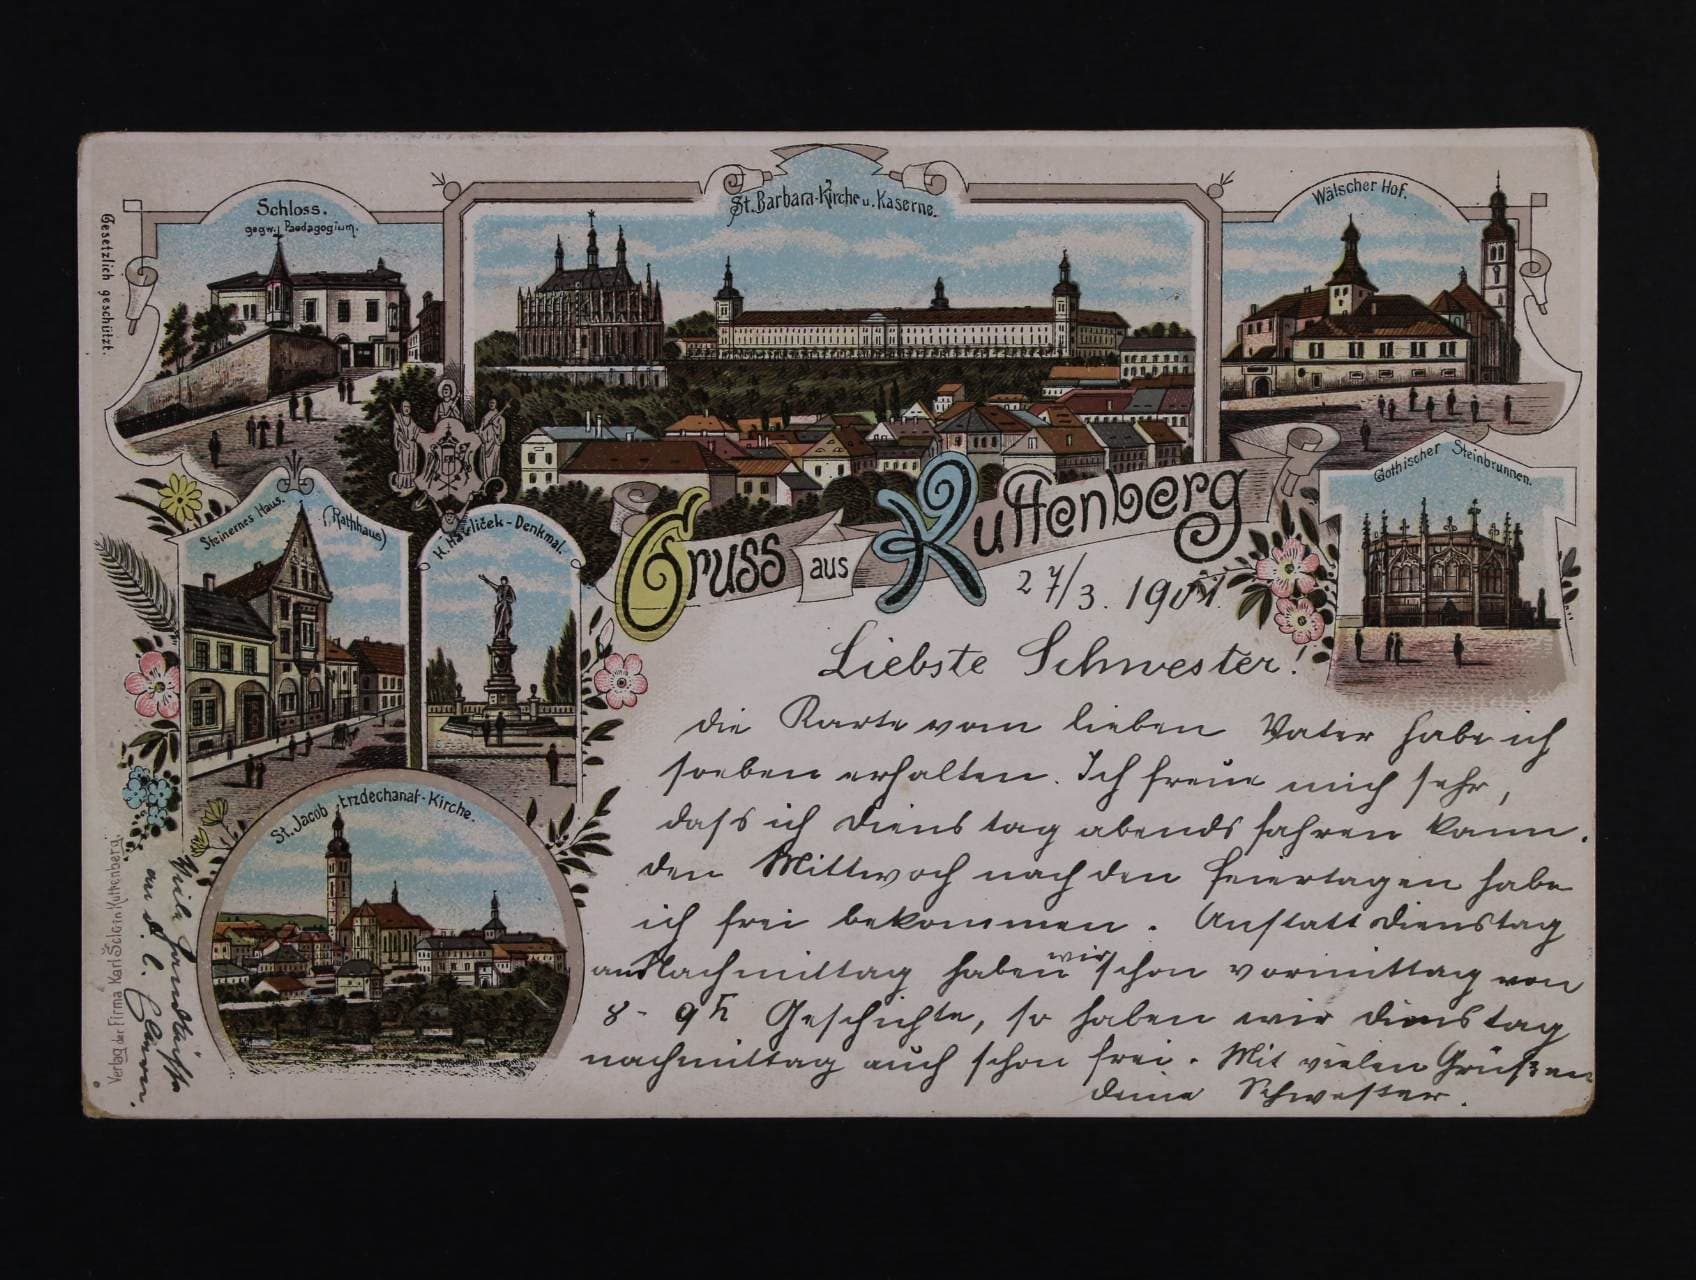 Gesetzlich geschützt.
Schloss.
gegw. Paedagogium.
St. Barbara-Kirche u. Kaserne.
Wälscher Hof.
Gothischer Steinbrunnen.
Steinernes Haus.
(Rathhaus)
H. Havliček-Denkmal.
St. Jacob Erzdechanat-Kirche.
Gruss aus Kuttenberg
27/3. 1901.
Liebste Schwester!
die Karte vom lieben Vater habe ich
soeben erhalten. Ich freue mich sehr,
dass ich Dienstag abends fahren kann.
den Mittwoch nach den Feiertagen habe
ich frei bekommen. Anstatt Dienstag
nachmittag haben wir schon vormittag von
8 - 9h Geschichte, so haben wir Dienstag
nachmittag auch schon frei. Mit vielen Grüßen
deine Schwester.
Viele Handküsse
an d. l. Eltern.
Verlag der Firma Karl Šolc in Kuttenberg.